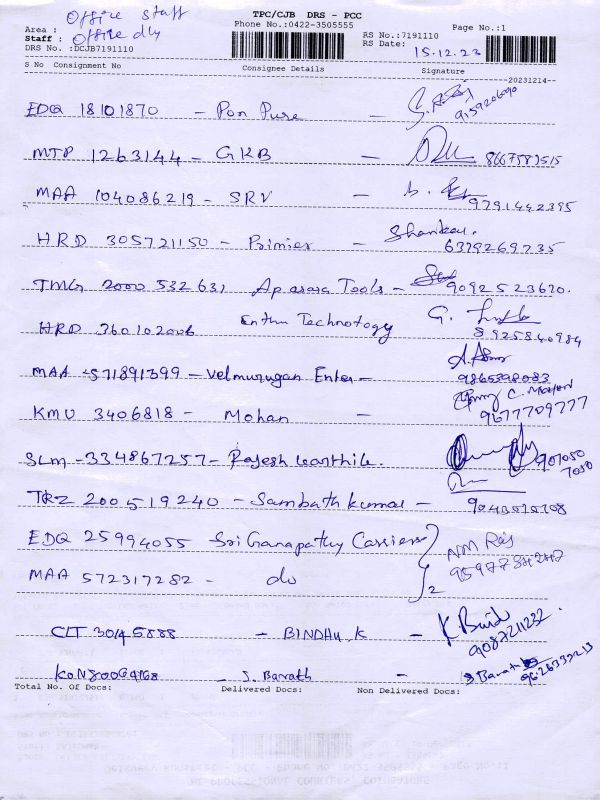 TPC/CJB DRS - PCC
Office staff
Phone No.:0422-3505555
Page No.:1
Area :
RS No.:7191110
Staff : Office dly
RS Date: 15.12.23
DRS No. :DCJB7191110
S No Consignment No Consignee Details Signature
--20231214--
EDQ 18101870 - Pon Pure
MTP 1263144 - GKB - 8667583515
MAA 104086219 - SRV - 9791442395
HRD 305721150 - Primier - Shankar. 6379269735
TMG 2000 532 631 Apasara Tools - 9092523620.
HRD 360102006 Enthu Technology G. 8925840984
MAA 571891399 - Velmurugan Enter - 9865398083
KMU 3406818 - Mohan - C. MOHAN 9677709777
SLM - 334867257 - Rajesh karthik.
TRZ 200519240 - Sambath kumar -
EDQ 25994055 Sri Ganapathy Carriers
MAA 572317282 - do 2
CLT 30145888 - BINDHU K - K. 9087211232.
- J. Barath - Barath
Total No. Of Docs: Delivered Docs: Non Delivered Docs: